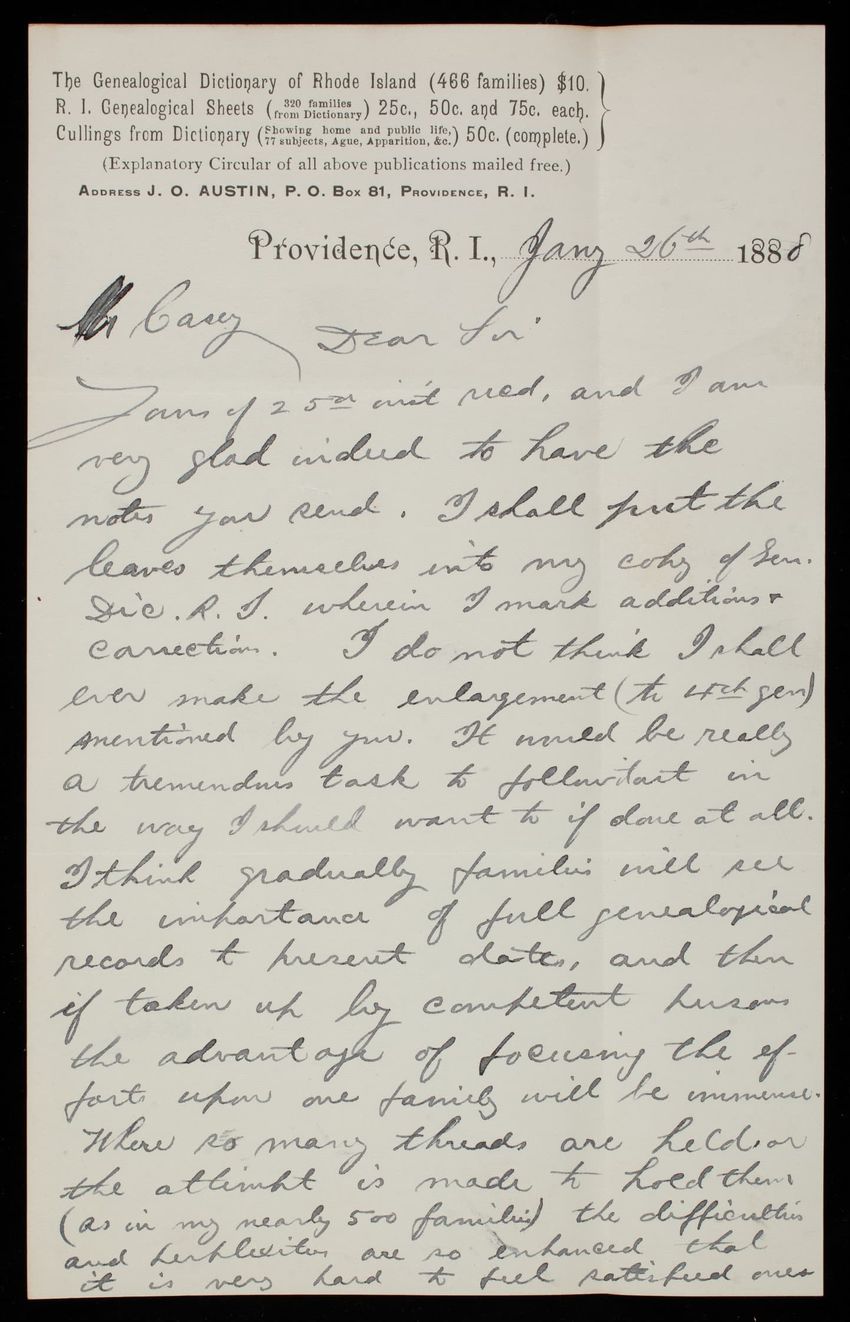 The Genealogical Dictionary of Rhode Island (466 families) $10.
R. I. Genealogical Sheets (320 families from Dictionary) 25c., 50c. and 75c. each.
Cullings from Dictionary (Showing home and public life, 77 subjects, Ague, Apparition, &c.) 50c. (complete.)
(Explanatory Circular of all above publications mailed free.)
Address J. O. AUSTIN, P. O. Box 81, Providence, R. I.
Providence, R. I., Jany 26th 1888
Mr Casey
Dear Sir
Yours of 25th inst recd, and I am
very glad indeed to have the
notes you send. I shall put the
leaves themselves into my copy of Gen.
Dic. R. I. wherein I mark additions &
corrections. I do not think I shall
ever make the enlargement (to 4th gen)
mentioned by you. It would be really
a tremendous task to follow out in
the way I should want to if done at all.
I think gradually families will see
the importance of full genealogical
records to present dates, and then
if taken up by competent persons
the advantage of focusing the ef-
forts upon one family will be immense.
Where so many threads are held or
the attempt is made to hold them
(as in my nearly 500 families) the difficulties
and perplexities are so enhanced that
it is very hard to feel satisfied ones